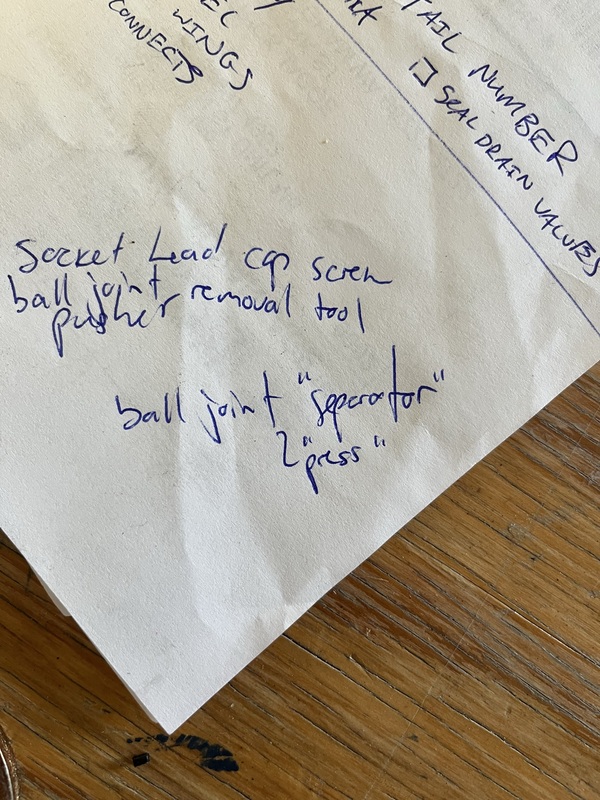 WINGS
CONNECTS
TAIL NUMBER
SEAL DRAIN VALVES
Socket head cap screw
ball joint removal tool
pusher
ball joint "separator"
"press"